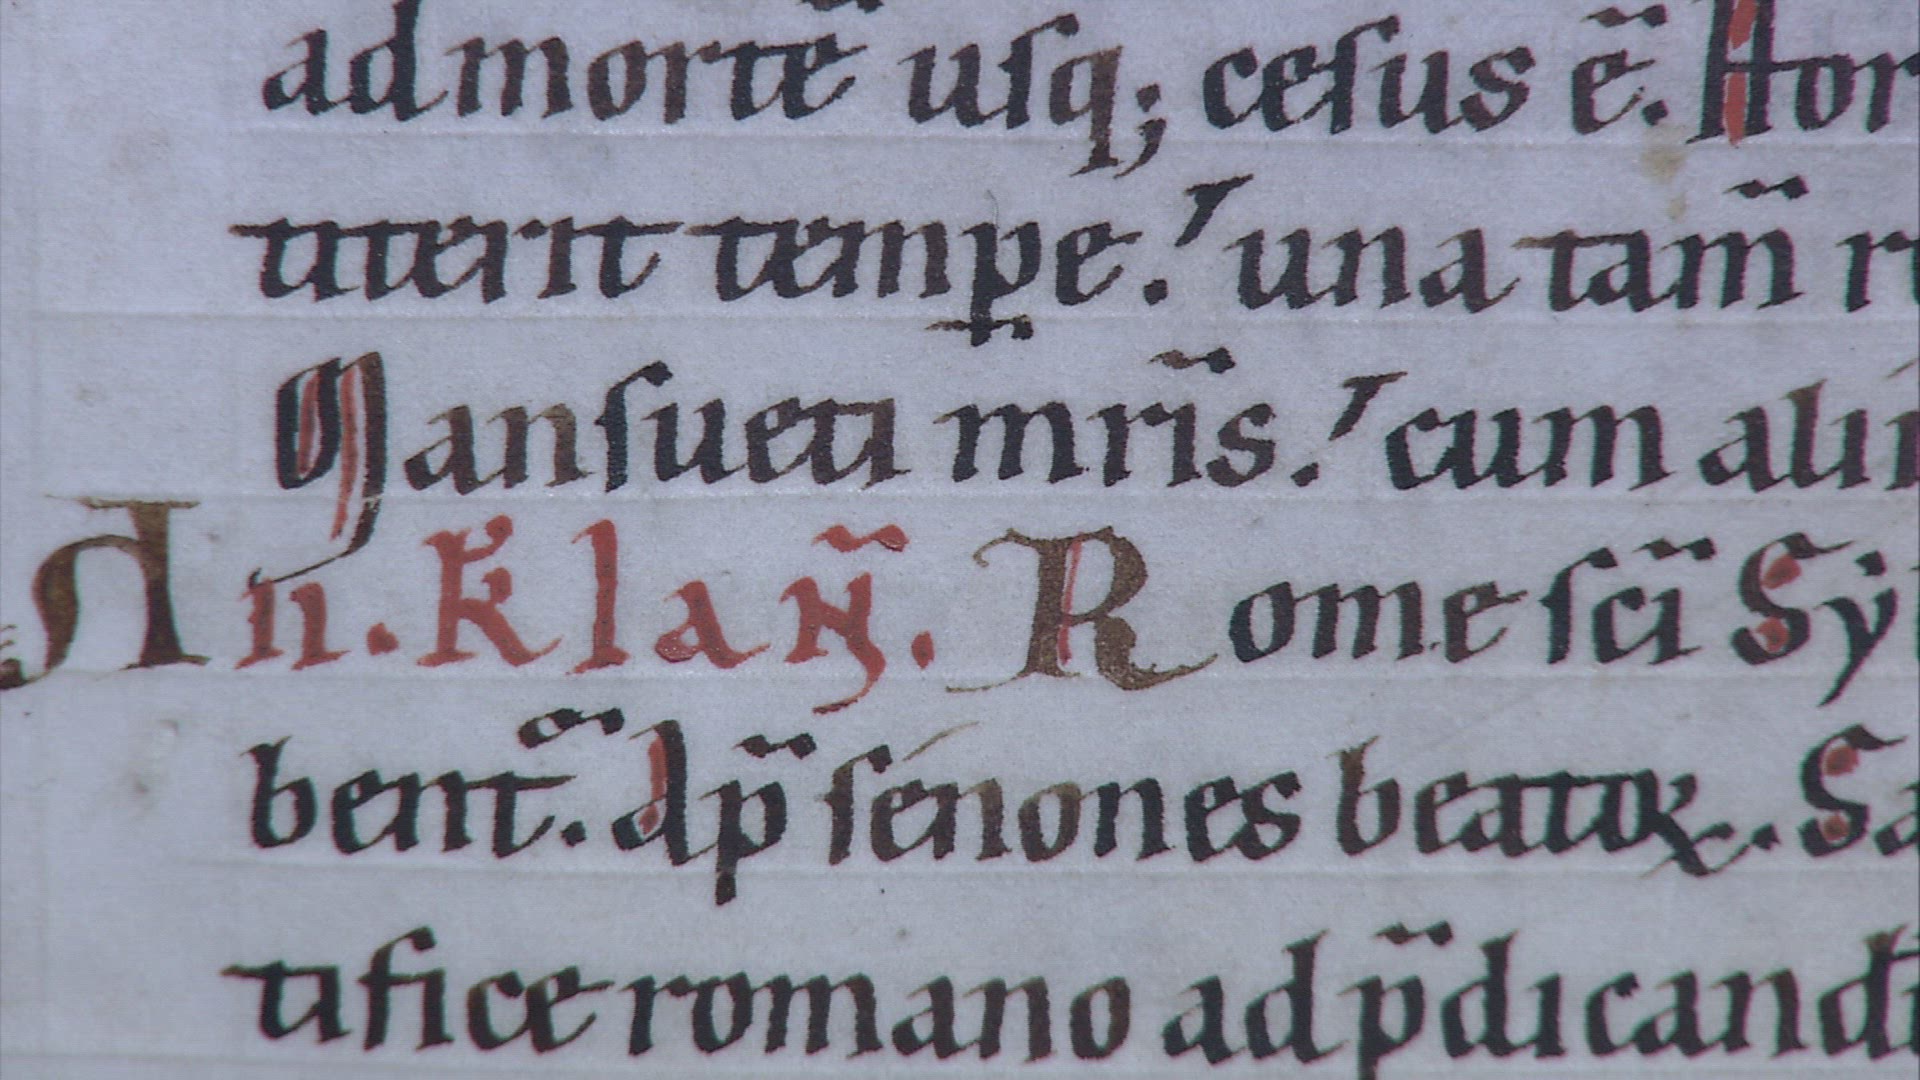 ad mortē uſq; ceſus ē. Hor
titerit tempꝑe. una tam̄
Manſueti mr̄is. cum alii
A n. k̄l ian̄. Rome ſcī Sy
bent̄. Ap̄ ſénones beatoꝝ. Sa
tifice romano ad p̄dicand